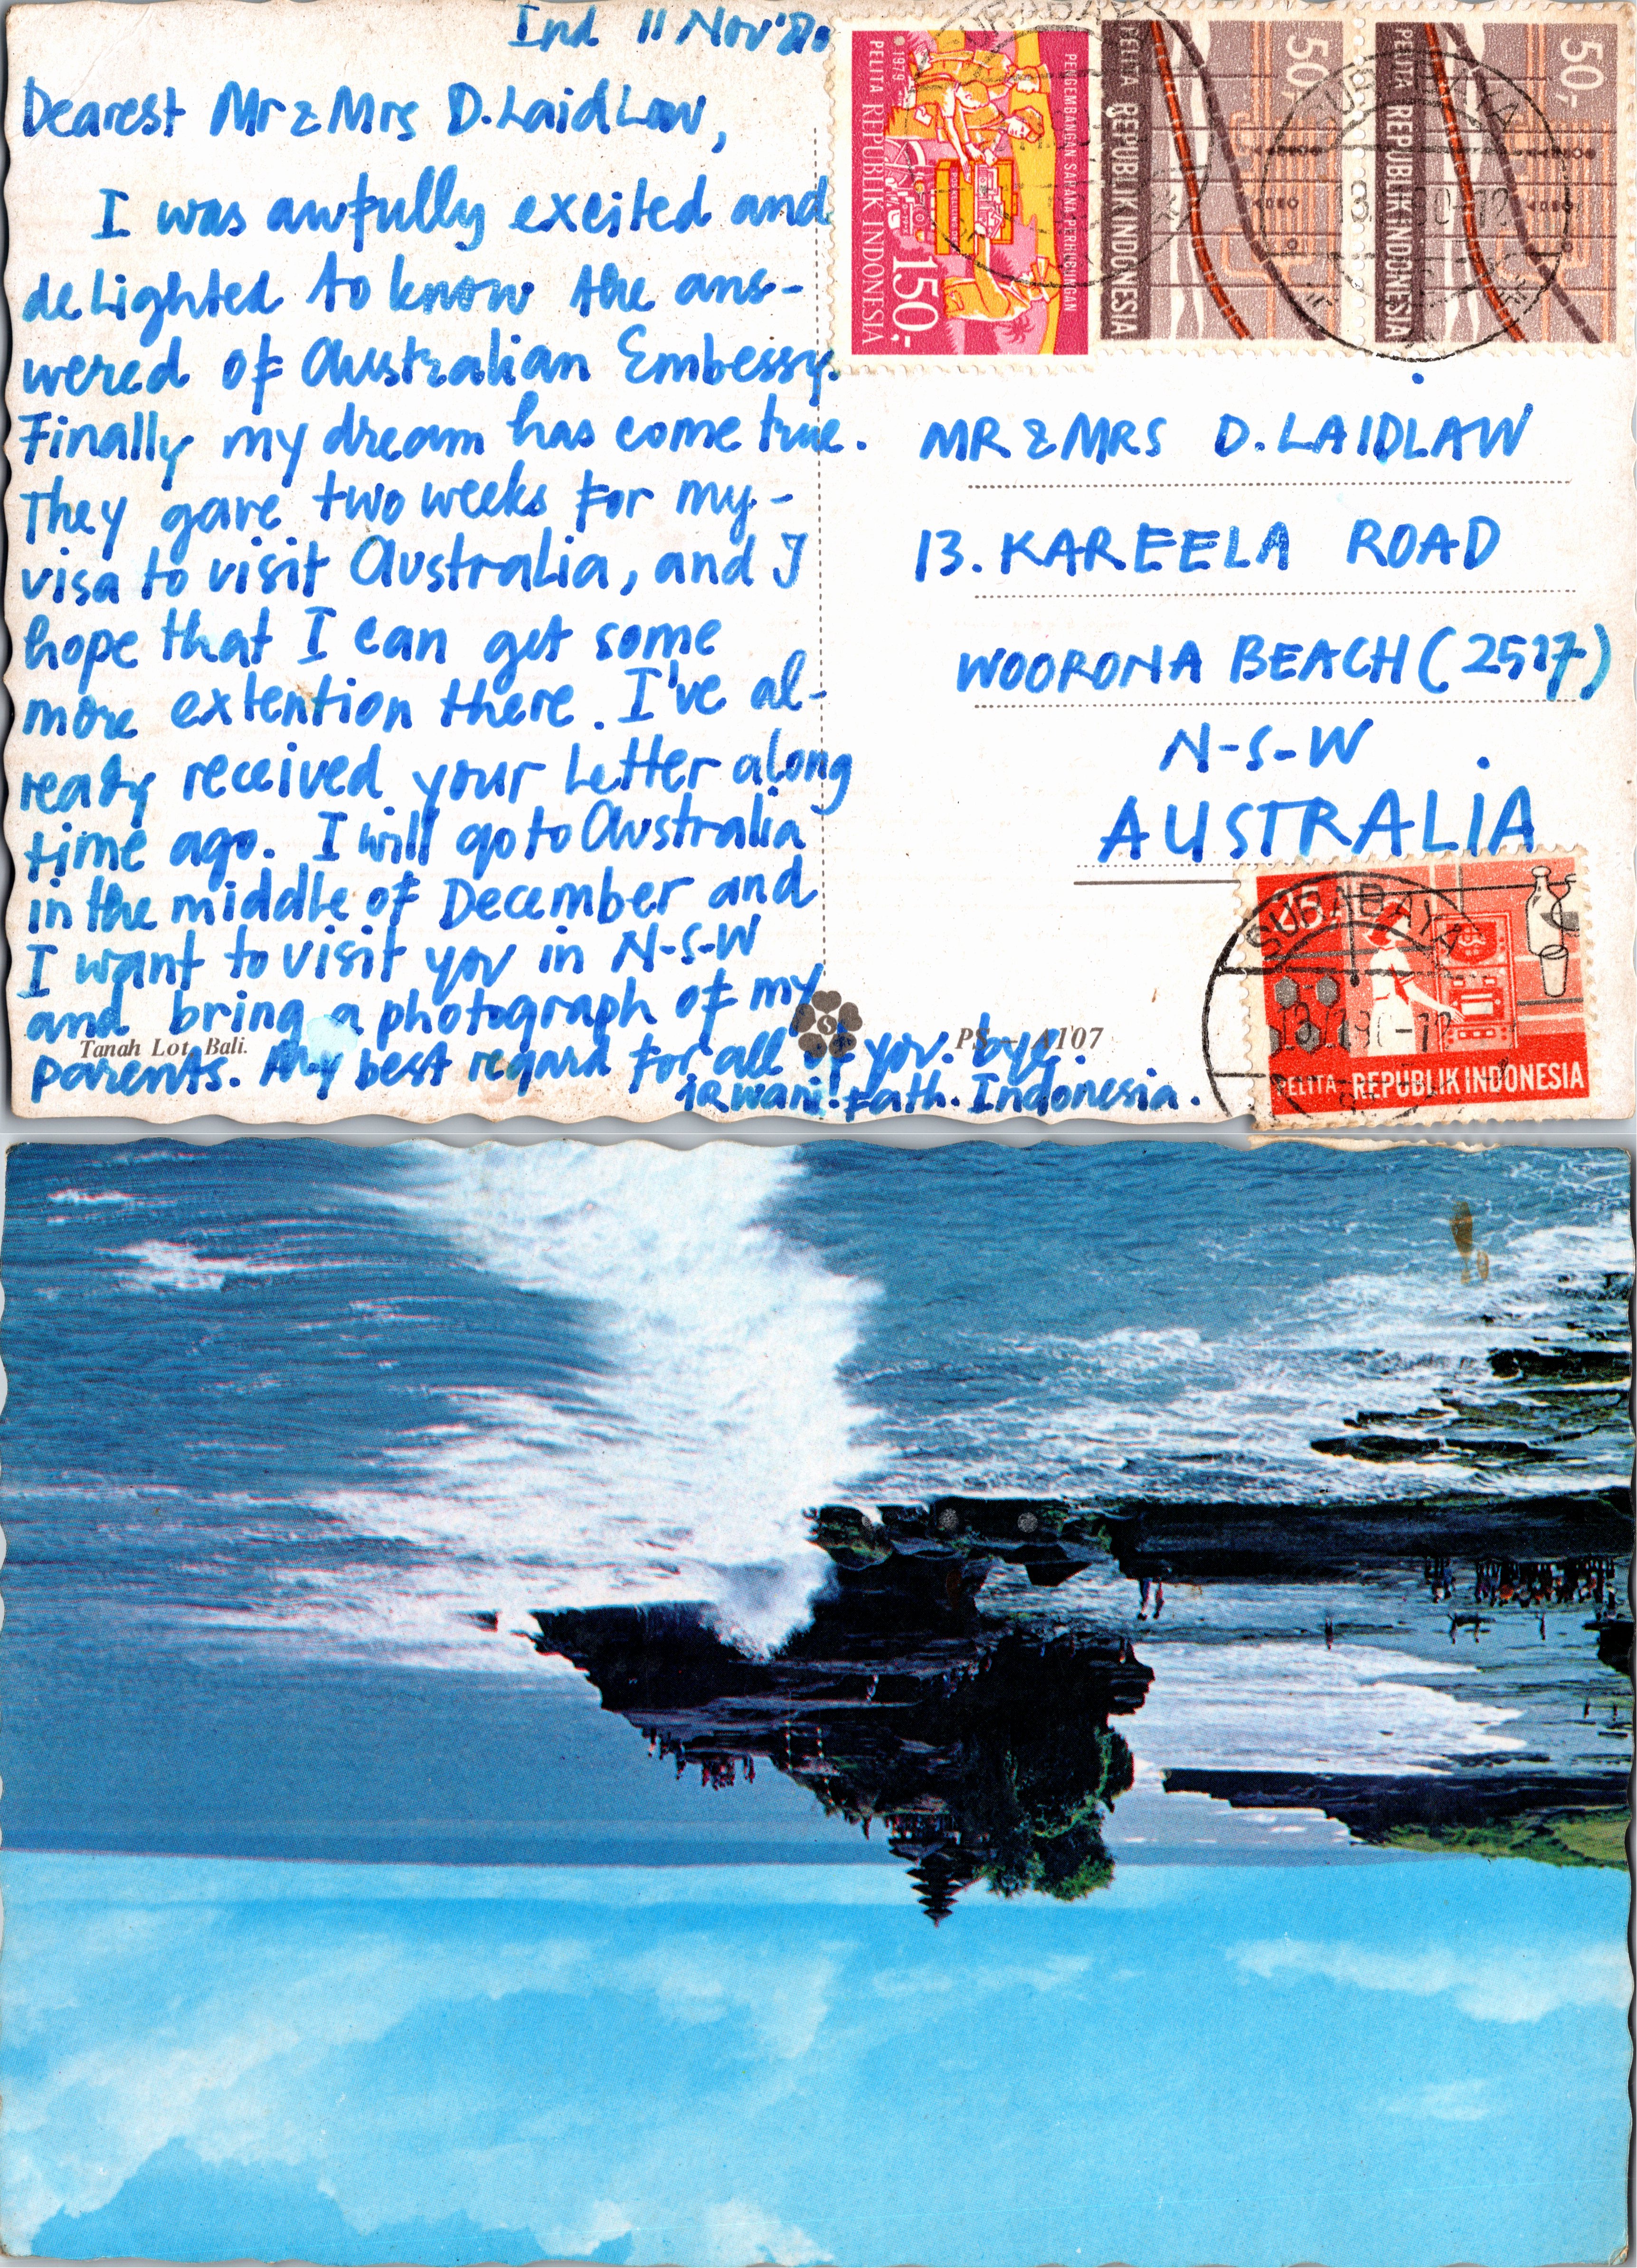 Ind 11 Nov'80
Dearest Mr & Mrs D. LaidLaw,
I was awfully excited and
deLighted to know the ans-
wered of Australian Embessy.
Finally my dream has come true.
They gave two weeks for my -
visa to visit Australia, and I
hope that I can get some
more extention there. I've al-
ready received your Letter along
time ago. I will go to Australia
in the middle of December and
I want to visit you in N-S-W
and bring a photograph of my
parents. My best regard for all of you. bye.
Irwani! Fath. Indonesia.
Tanah Lot, Bali.
PS - A107
PENGEMBANGAN SARANA PERHUBUNGAN
1979
PELITA REPUBLIK INDONESIA
150,-
50,-
PELITA REPUBLIK INDONESIA
50,-
PELITA REPUBLIK INDONESIA
SURABAYA
MR & MRS D. LAIDLAW
13. KAREELA ROAD
WOORONA BEACH (2517)
N-S-W
AUSTRALIA
SURABAYA
15,-
PELITA REPUBLIK INDONESIA